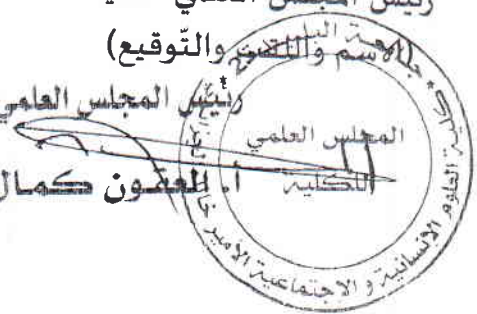 رئيس المجلس العلمي
(الاسم واللقب والتّوقيع)
رئيس المجلس العلمي
المجلس العلمي
للكلية
أ. لعقون كمال
كلية العلوم الإنسانية و الاجتماعية الأمير خا